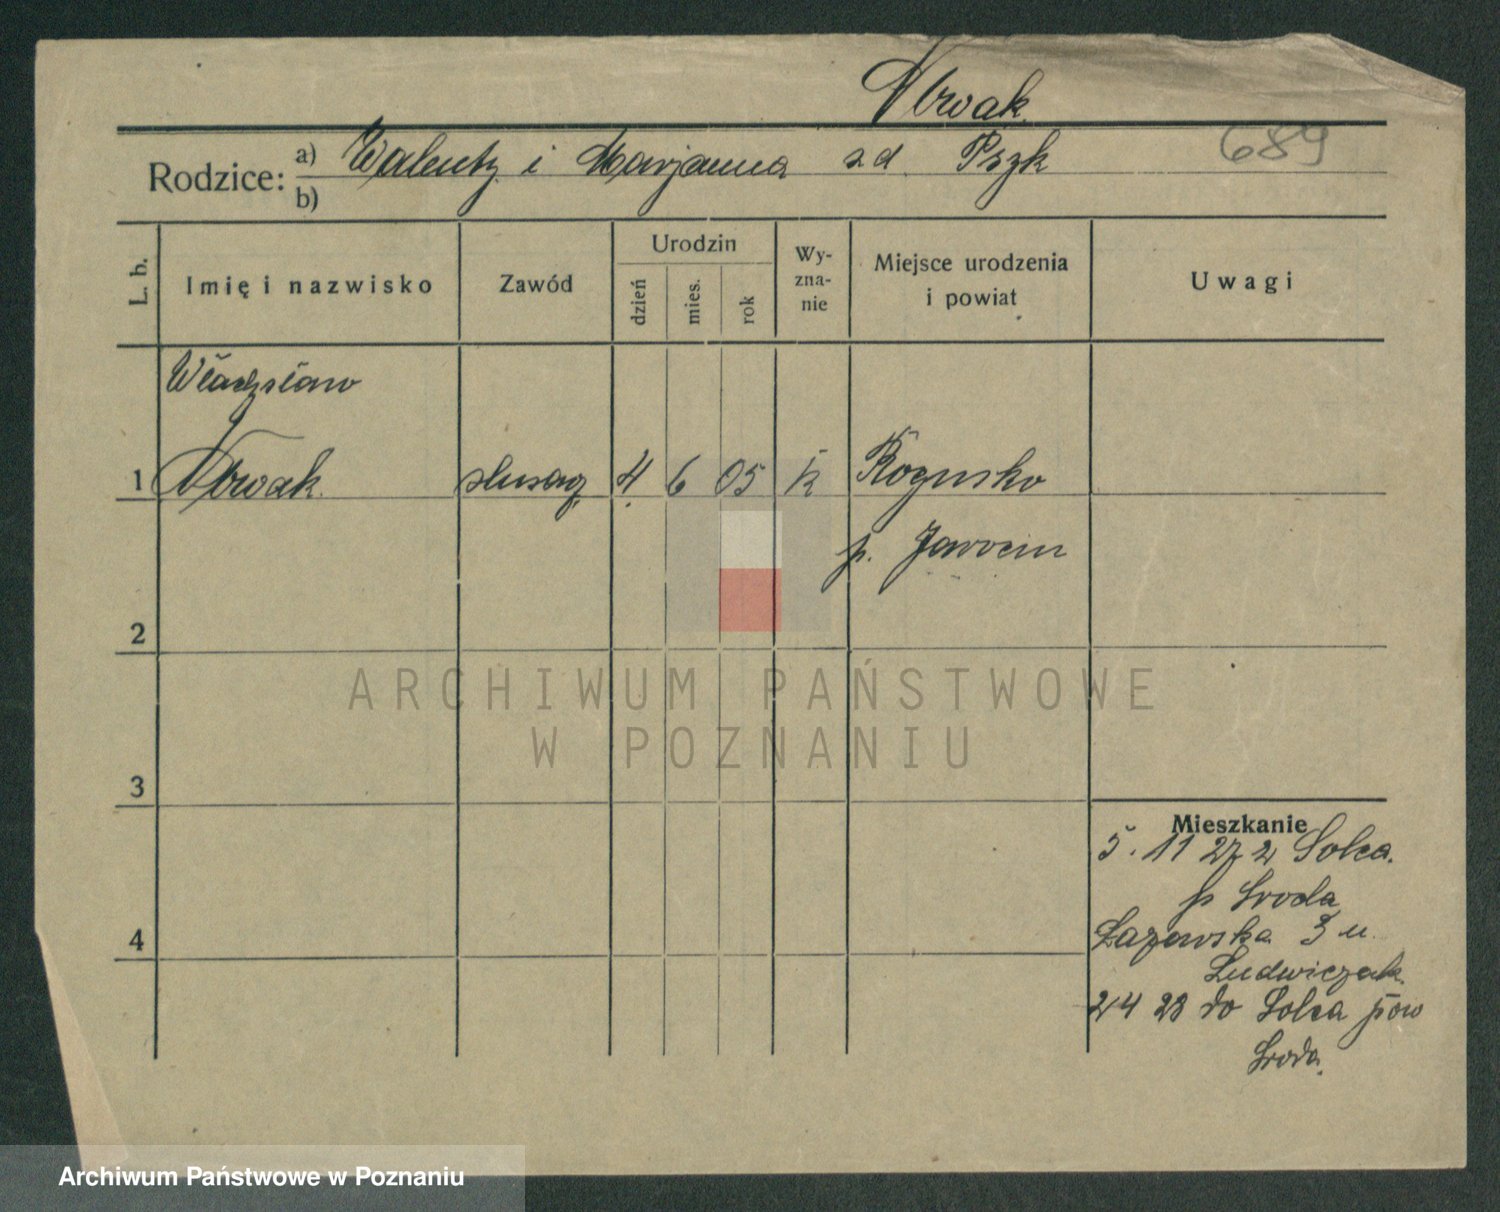 Nowak
Rodzice: a) Walenty i Marjanna z d. Pszk 689
b)
L. b. Imię i nazwisko Zawód Urodzin dzień mies. rok Wy-znanie Miejsce urodzenia i powiat Uwagi
Władysław
1 Nowak slusarz 4 6 05 k Rogusko
p. Jarocin
2
ARCHIWUM PAŃSTWOWE
W POZNANIU
3
Mieszkanie
5. 11 27 z Solca
p Sroda
4 Łazowska 3 u
Ludwiczak
24 28 do Solca pow
Sroda.
Archiwum Państwowe w Poznaniu